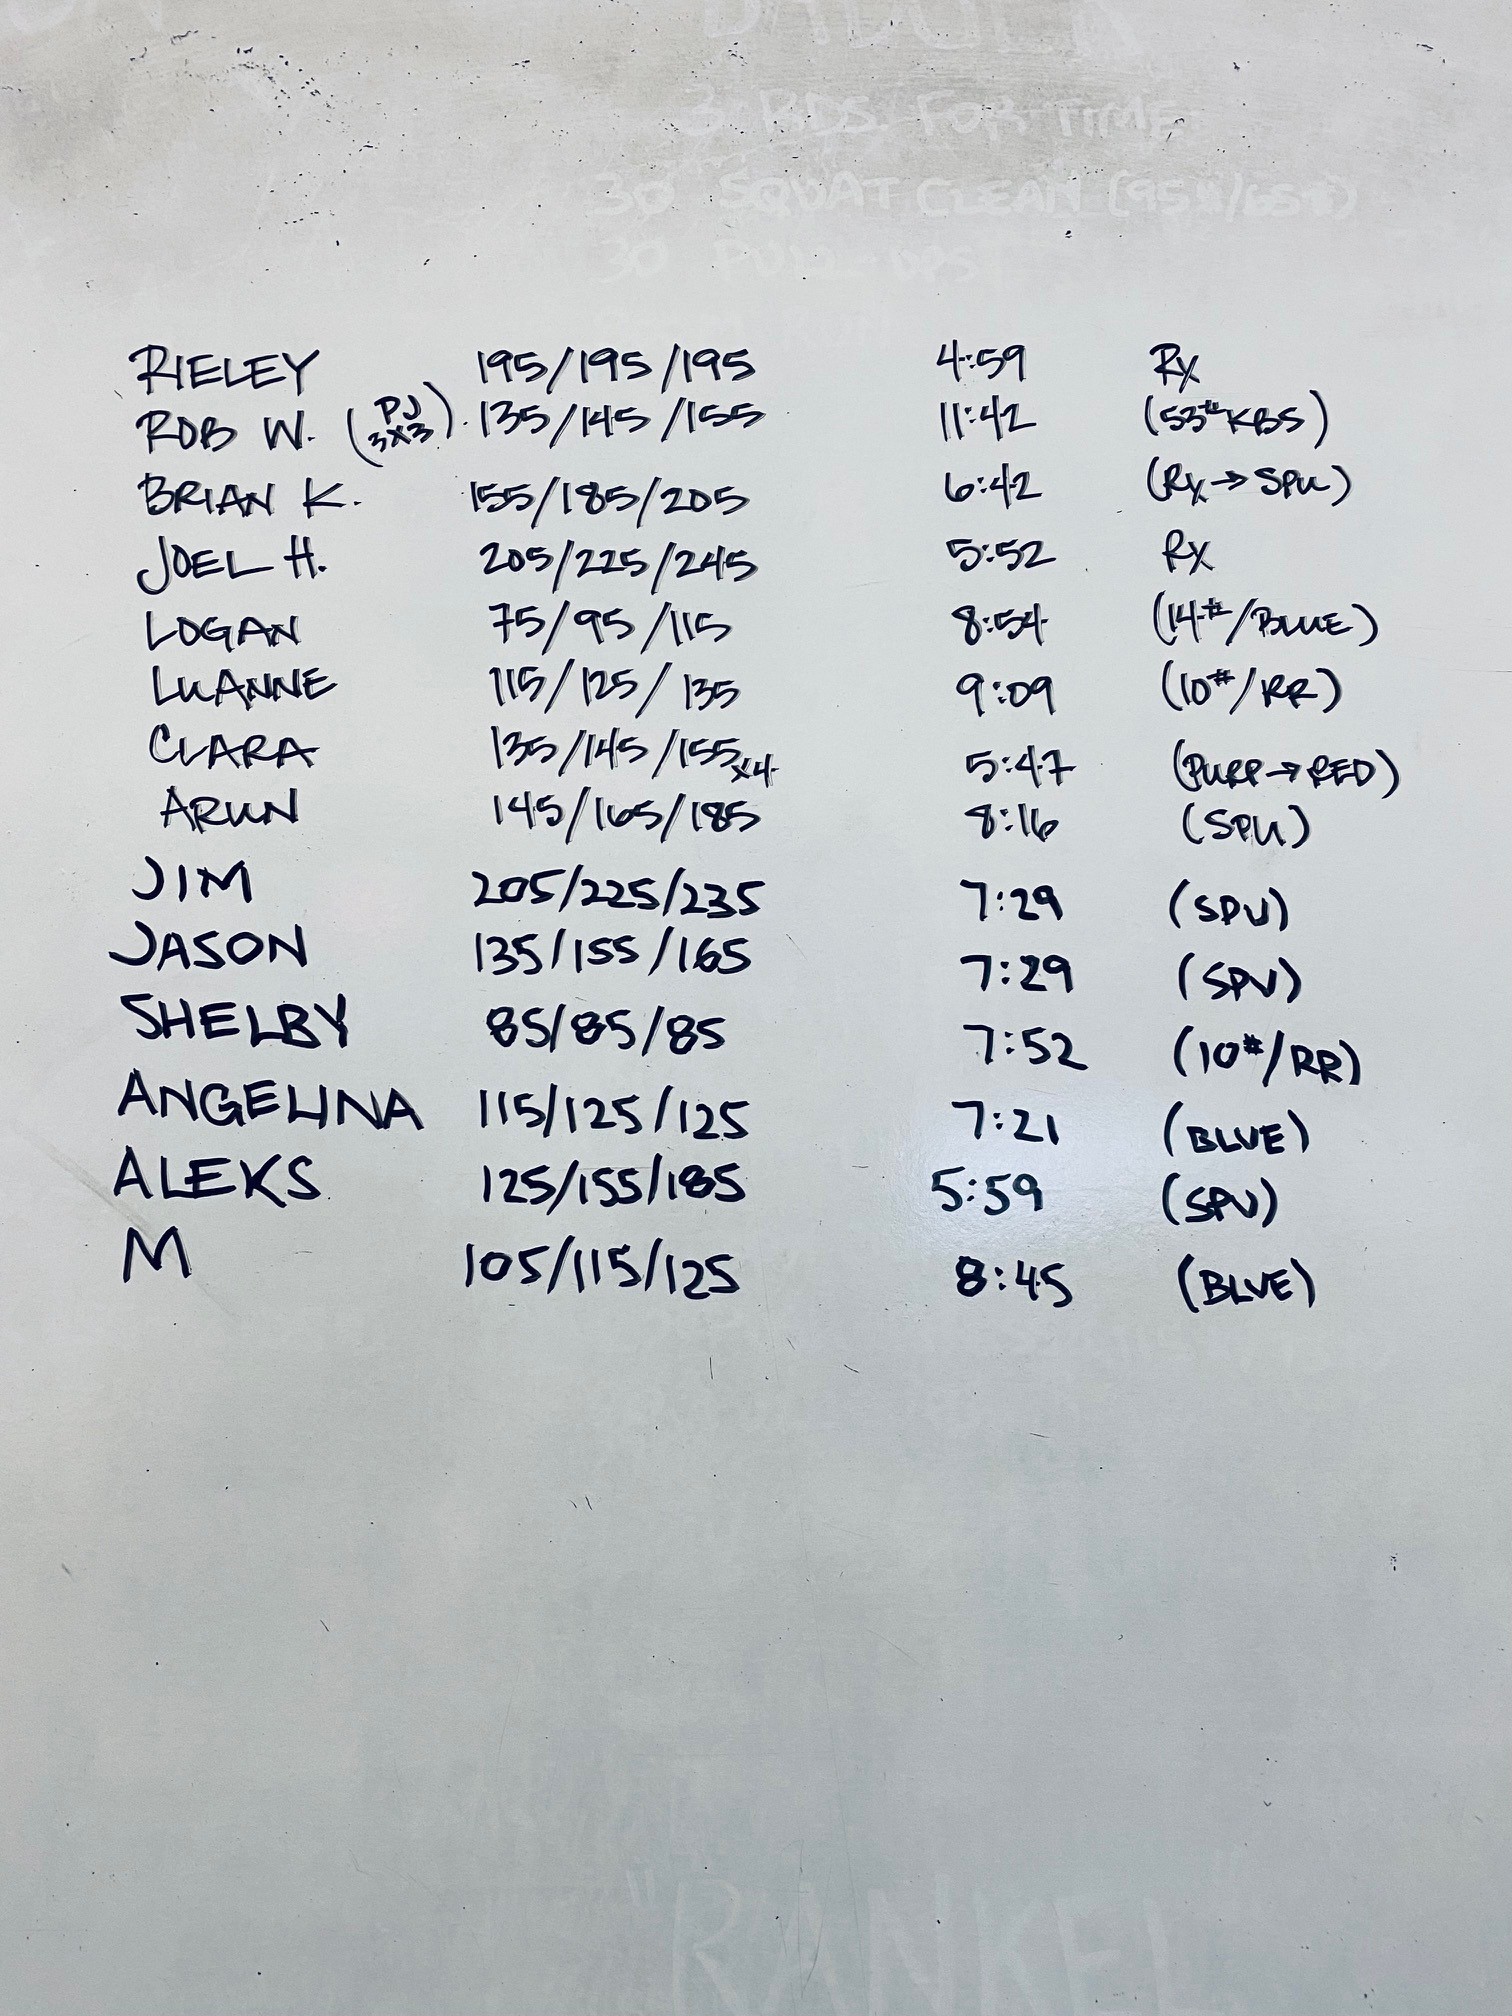 3 RDS. FOR TIME
30 SQUAT CLEAN (95#/65#)
30 PULL-UPS
RIELEY 195/195/195 4:59 Rx
ROB W. (PJ 3x3). 135/145/155 11:42 (53# KBS)
BRIAN K. 155/185/205 6:42 (Rx→SPU)
JOEL H. 205/225/245 5:52 Rx
LOGAN 75/95/115 8:54 (14#/BLUE)
LUANNE 115/125/135 9:09 (10#/RR)
CLARA 135/145/155x4 5:47 (PURP→RED)
ARUN 145/165/185 8:16 (SPU)
JIM 205/225/235 7:29 (SPU)
JASON 135/155/165 7:29 (SPU)
SHELBY 85/85/85 7:52 (10#/RR)
ANGELINA 115/125/125 7:21 (BLUE)
ALEKS 125/155/185 5:59 (SPU)
M 105/115/125 8:45 (BLUE)
"RANKEL"